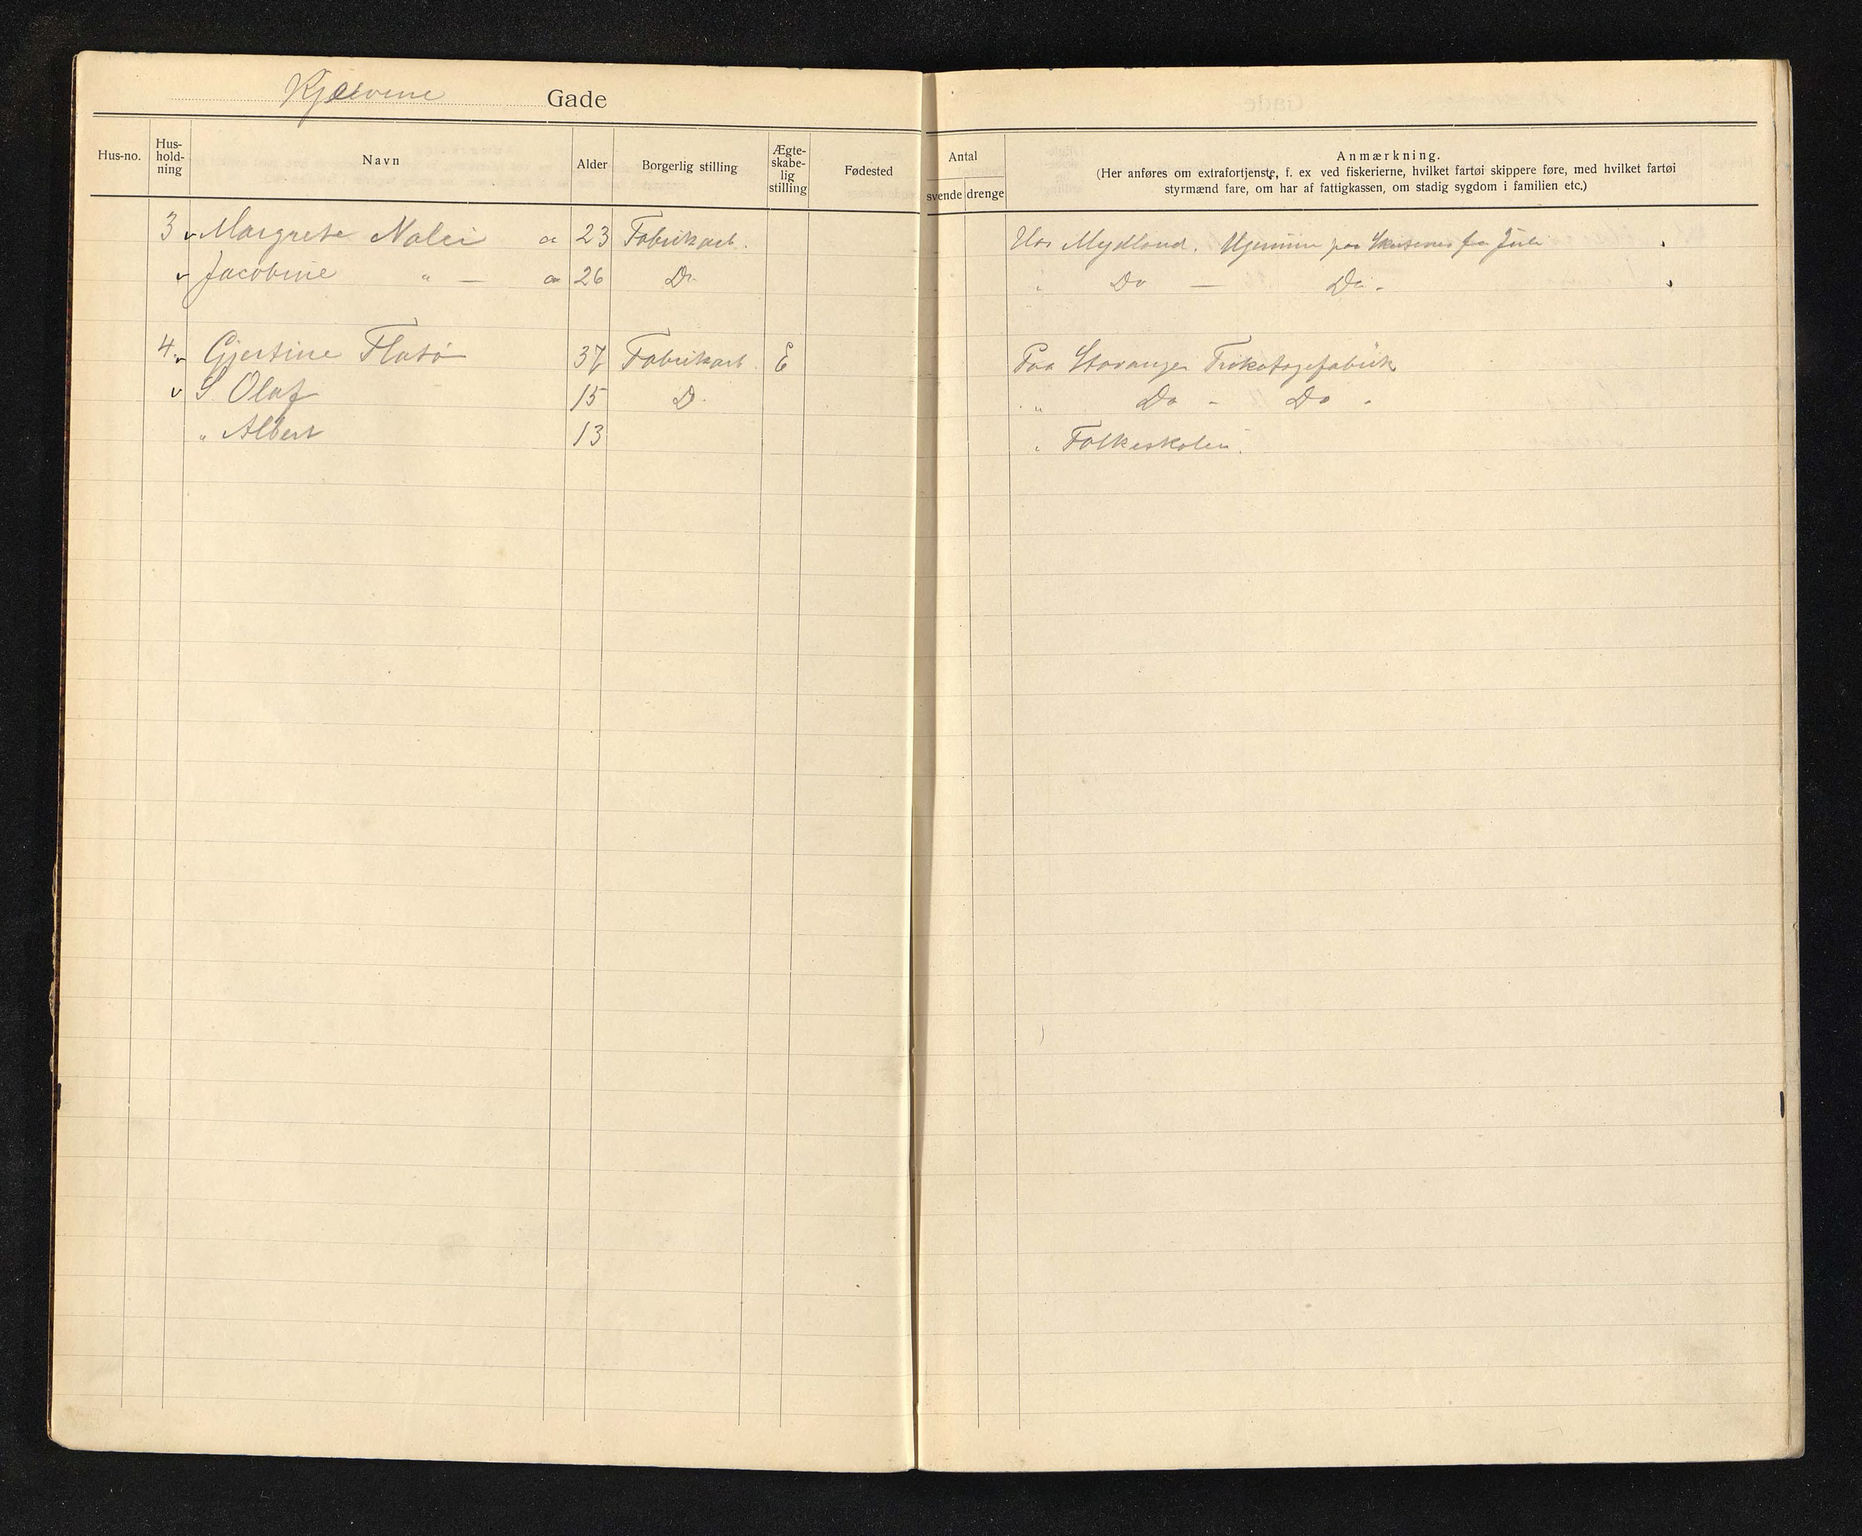 Kjelvene Gade
Hus-no. Hus-hold-ning Navn Alder Borgerlig stilling Ægte-skabe-lig stilling Fødested Antal svende drenge Anmærkning.
(Her anføres om extrafortjenste, f. ex ved fiskerierne, hvilket fartøi skippere føre, med hvilket fartøi
styrmænd fare, om har af fattigkassen, om stadig sygdom i familien etc.)
3 v Margrete Nalei a 23 Fabrikarb. Hos Mydland. Hjemme paa Skutenes fra Juli
v Jacobine " — a 26 Do " Do — Do.
4. v Gjertine Flatø 37 Fabrikarb. E Paa Stavanger Trikotagefabrik
v S. Olaf 15 Do " Do - Do.
" Albert 13 " Folkeskolen.